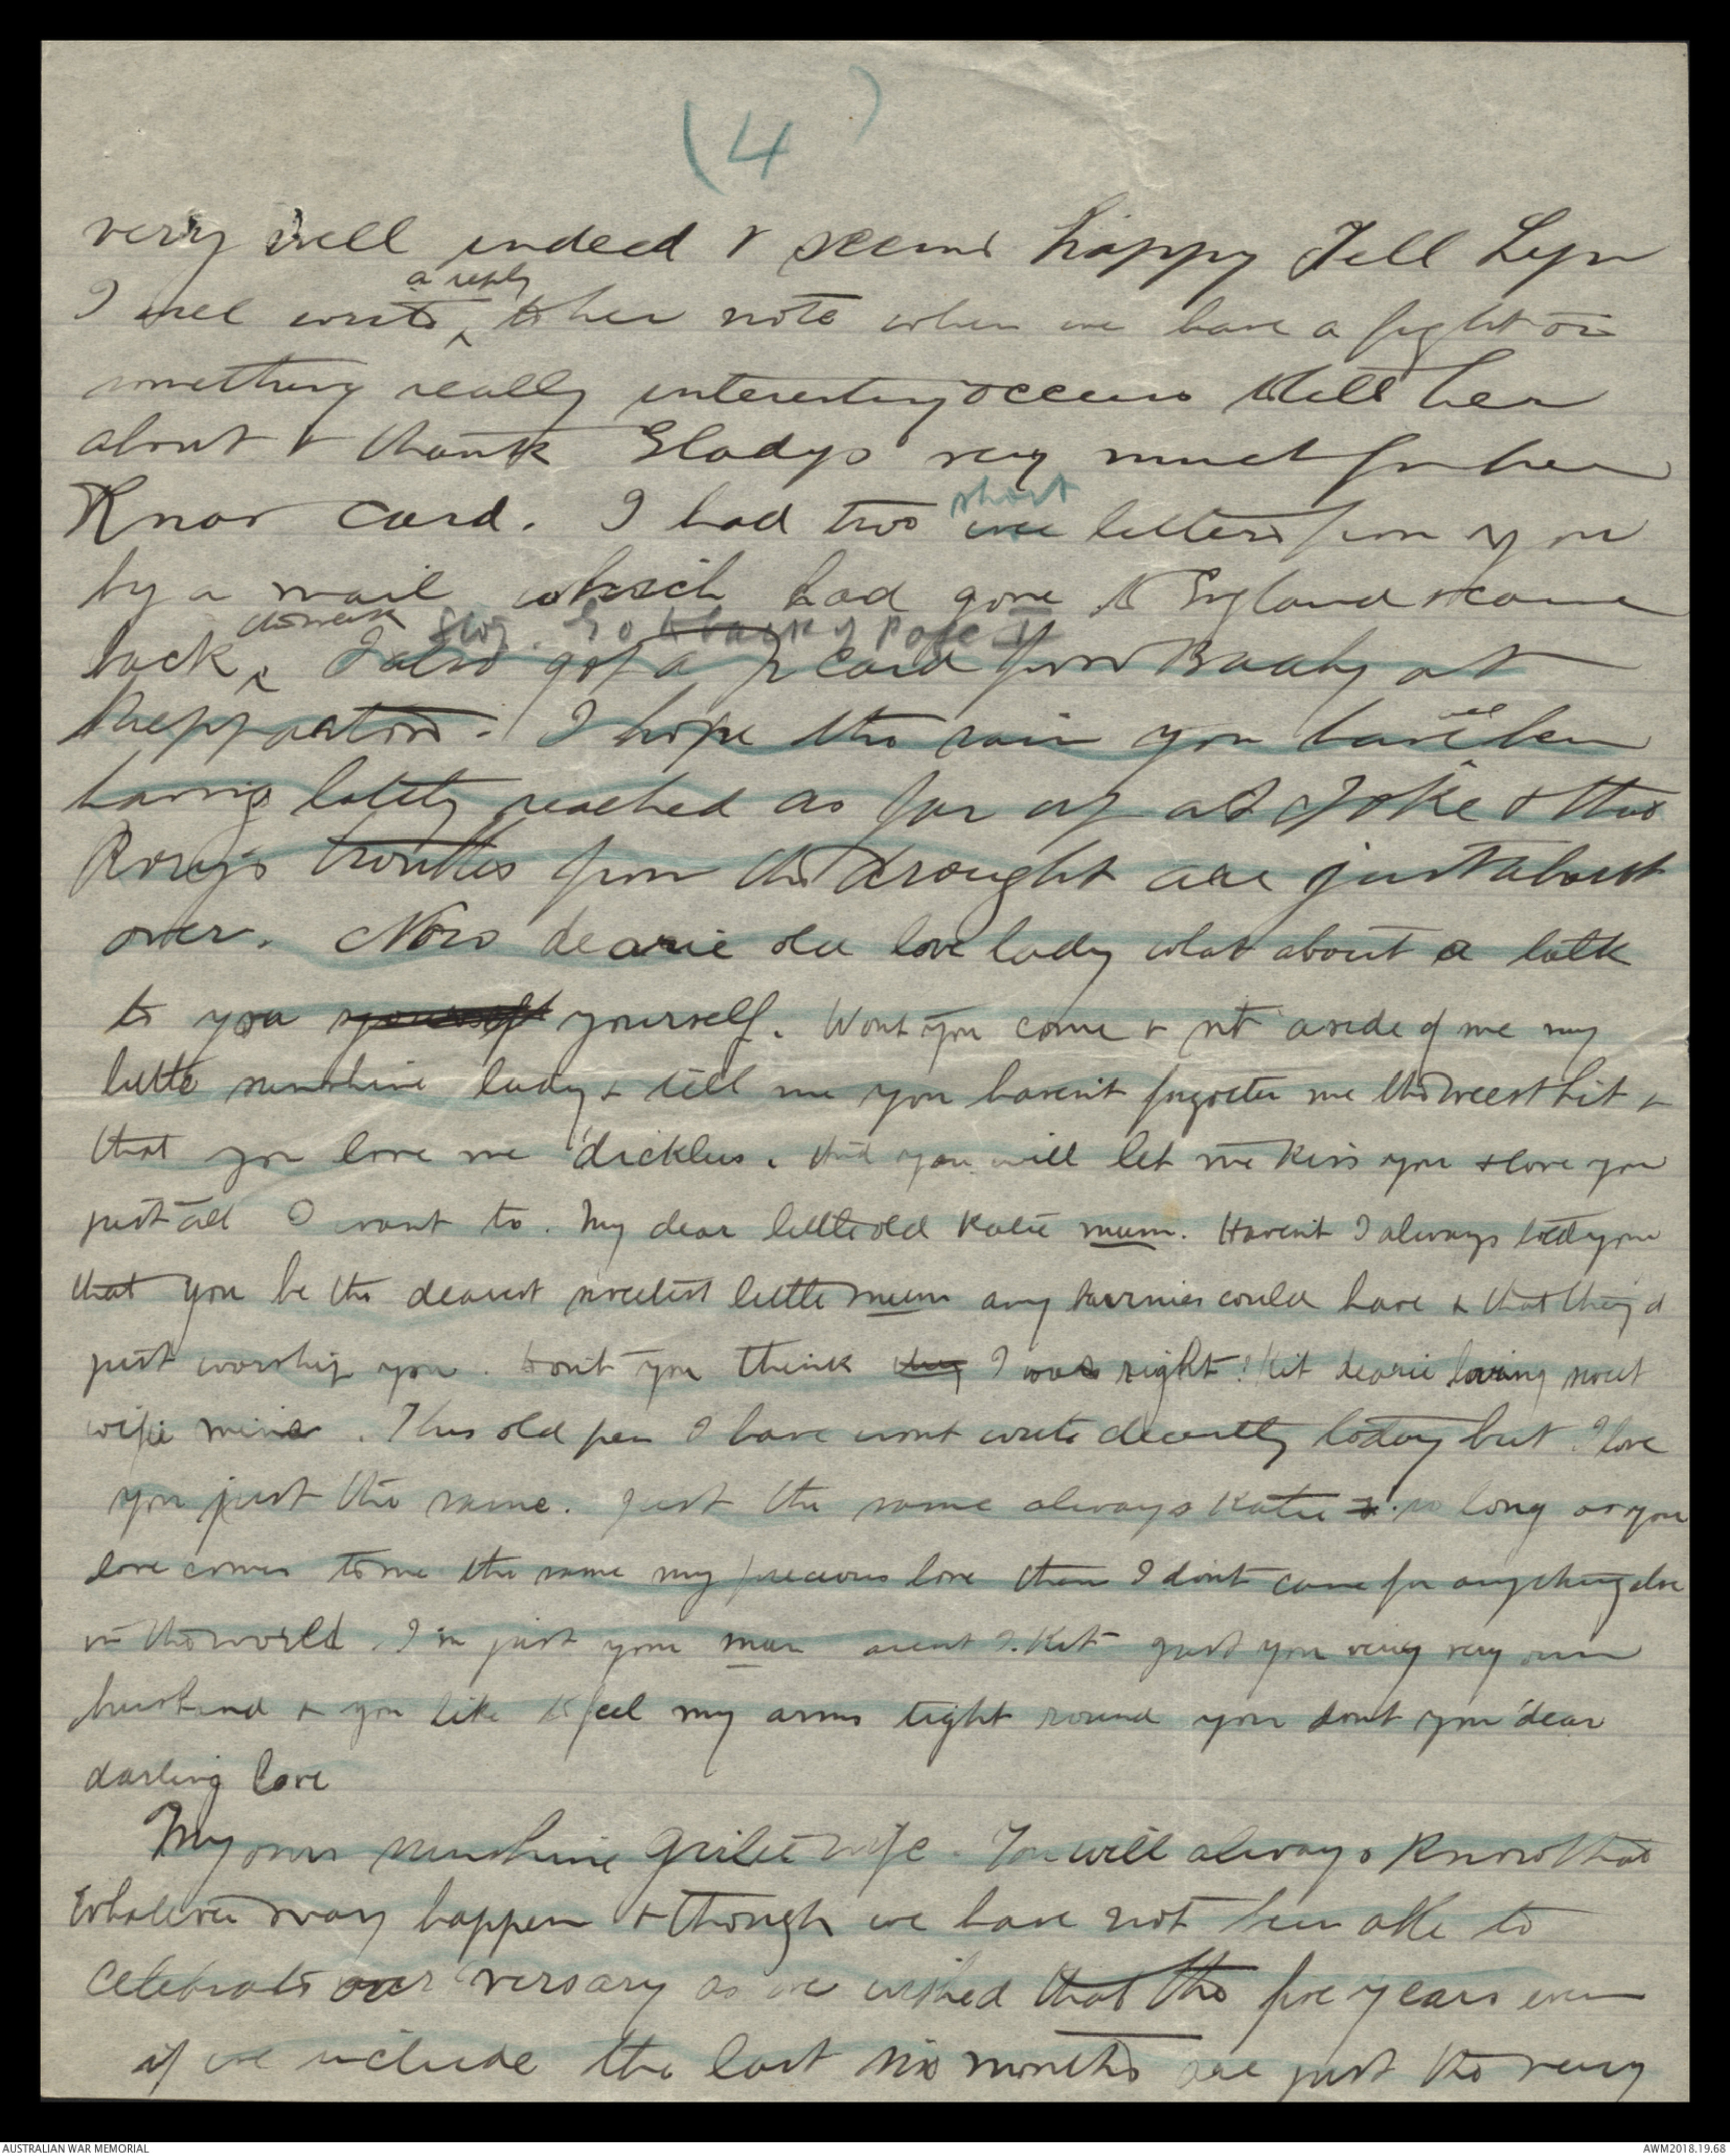 (4)
very well indeed & seems happy Tell Lyn
I will write a reply to her note when we have a fight or
something really interesting occurs to tell her
about & thank Gladys very much for her
Xmas card. I had two short wee letters from you
by a mail which had gone to England & came
back this week, I also got a p card from Baaby at
Stop. Go to back of page II
Shepparton. I hope the rain you have all been
having lately reached as far up as & that
Rory's troubles from the drought are just about
over. Now dearie old love lady what about a talk
to you yourself. Wont you come & sit aside of me my
little sunshine lady & tell me you haven't forgotten me the weest bit &
that you love me 'dicklus. And you will let me kiss you & love you
just all I want to. My dear little old Katie mum. Haven't I always told you
that you be the dearest sweetest little mum any bairnies could have & that they'd
just worship you. Don't you think they I was right? Kit dearie loving sweet
wifie mine. This old pen I have wont write decently today but I love
you just the same. Just the same always Katie & so long as you
love comes to me the same my precious love then I dont care for anything else
in the world. I'm just your man arent I. Kit just you very very own
husband & you like to feel my arms tight round you dont you dear
darling love
My own sunshine girlie wife. You will always know that
whatever may happen & though we have not been able to
celebrate our versary as we wished that the five years even
if we include the last six months are just the very
AUSTRALIAN WAR MEMORIAL
AWM2018.19.68